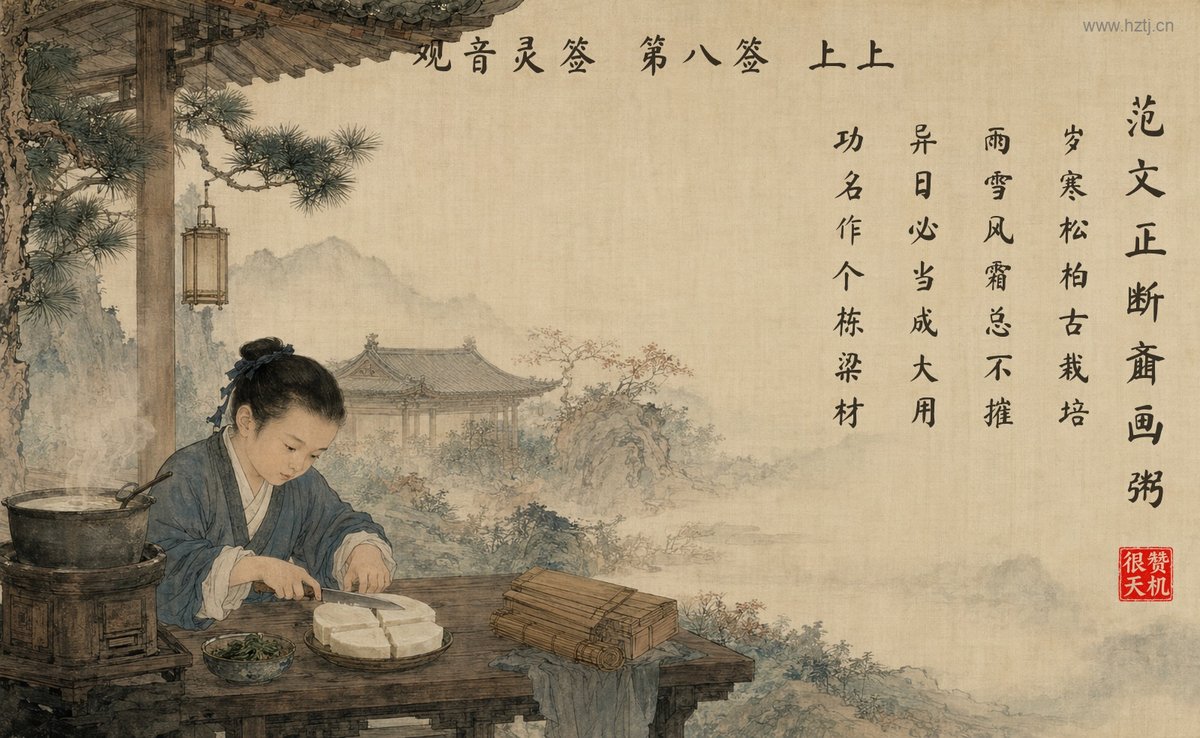 www.hztj.cn
观音灵签 第八签 上上
范文正断齑画粥
岁寒松柏古栽培
雨雪风霜总不摧
异日必当成大用
功名作个栋梁材
赞机
很天